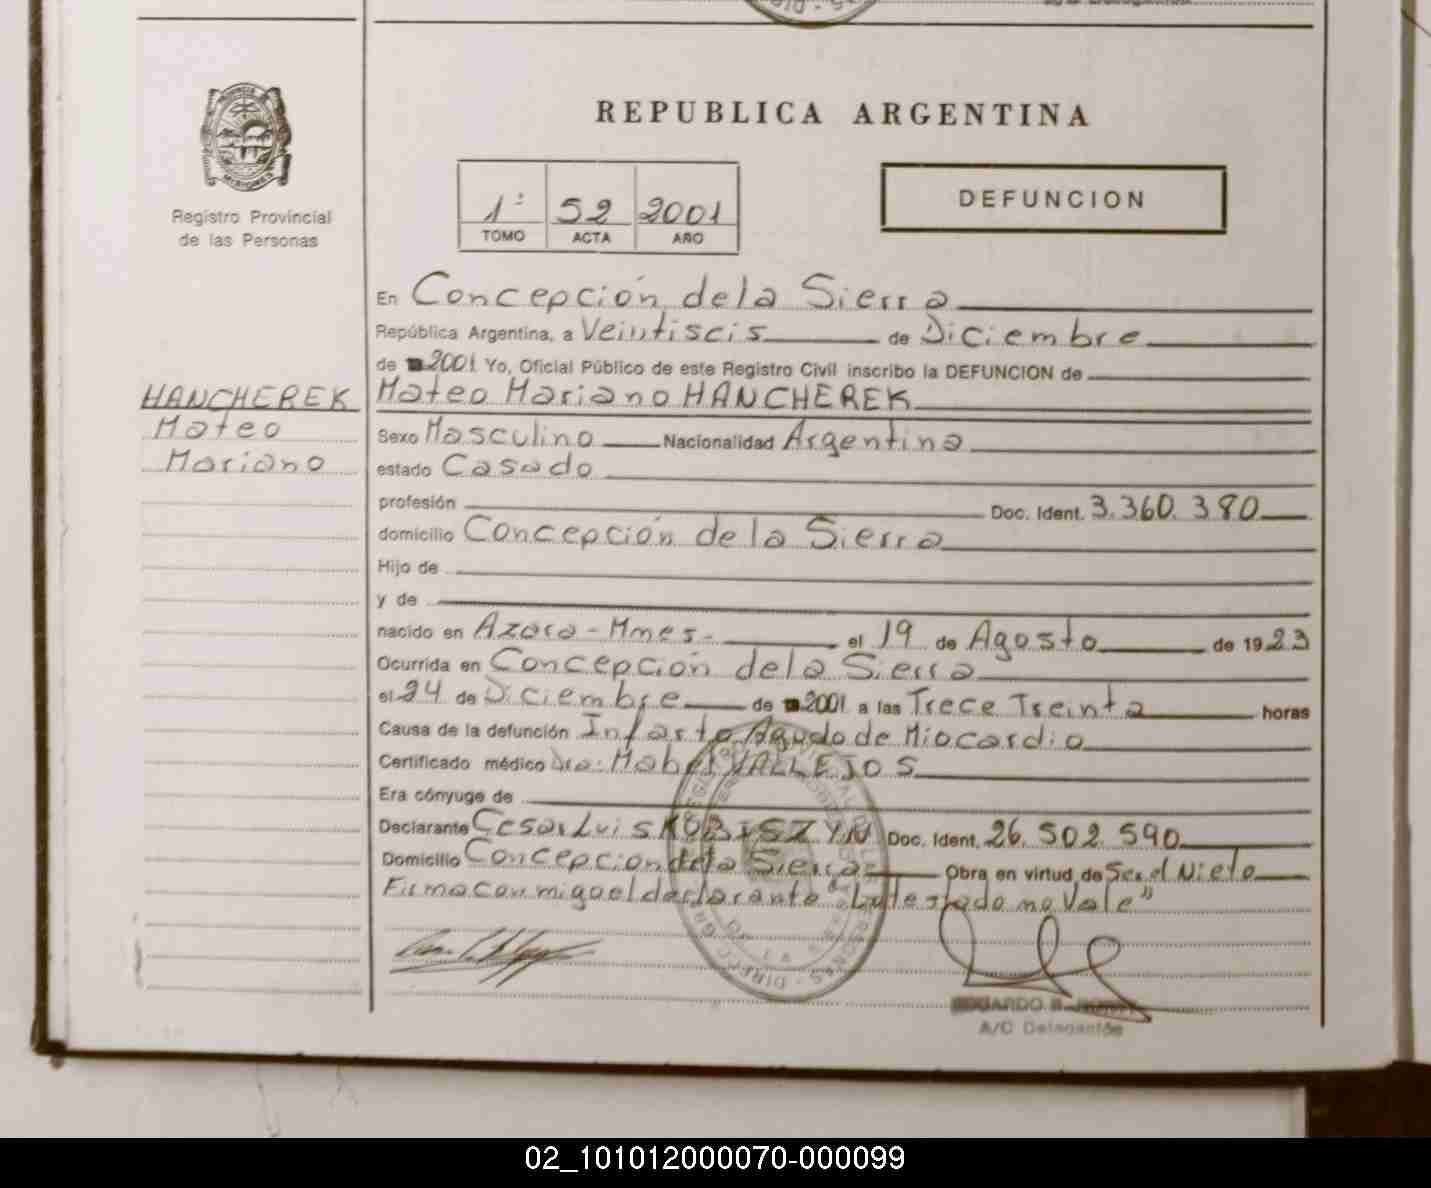 REPUBLICA ARGENTINA
PROVINCIA DE
MISIONES
Registro Provincial
de las Personas
1º 52 2001
TOMO ACTA AÑO
DEFUNCION
En Concepción de la Sierra
República Argentina, a Veintiseis de Diciembre
de 2001 Yo, Oficial Público de este Registro Civil inscribo la DEFUNCION de
HANCHEREK
Mateo
Mariano
Mateo Mariano HANCHEREK
Sexo Masculino Nacionalidad Argentina
estado Casado
profesión Doc. Ident. 3.360.380
domicilio Concepción de la Sierra
Hijo de
y de
nacido en Azara - Mnes - el 19 de Agosto de 1923
Ocurrida en Concepción de la Sierra
el 24 de Diciembre de 2001 a las Trece Treinta horas
Causa de la defunción Infarto Agudo de Miocardio
Certificado médico Dra: Mabel VALLEJOS
Era cónyuge de
Declarante Cesar Luis KOBISZYN Doc. Ident. 26.502.590
Domicilio Concepcion de la Sierra Obra en virtud de Ser el Nieto
Firma conmigo el declarante "Lo testado no Vale"
EDUARDO R.
A/C Delegación
02_101012000070-000099